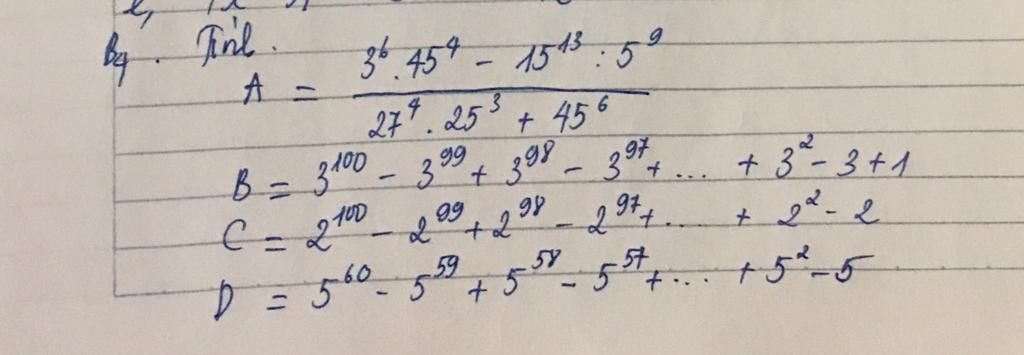 B4. Tính.
A = (3^6 . 45^4 - 15^13 : 5^9) / (27^4 . 25^3 + 45^6)
B = 3^100 - 3^99 + 3^98 - 3^97 + ... + 3^2 - 3 + 1
C = 2^100 - 2^99 + 2^98 - 2^97 + .... + 2^2 - 2
D = 5^60 - 5^59 + 5^58 - 5^57 + ... + 5^2 - 5